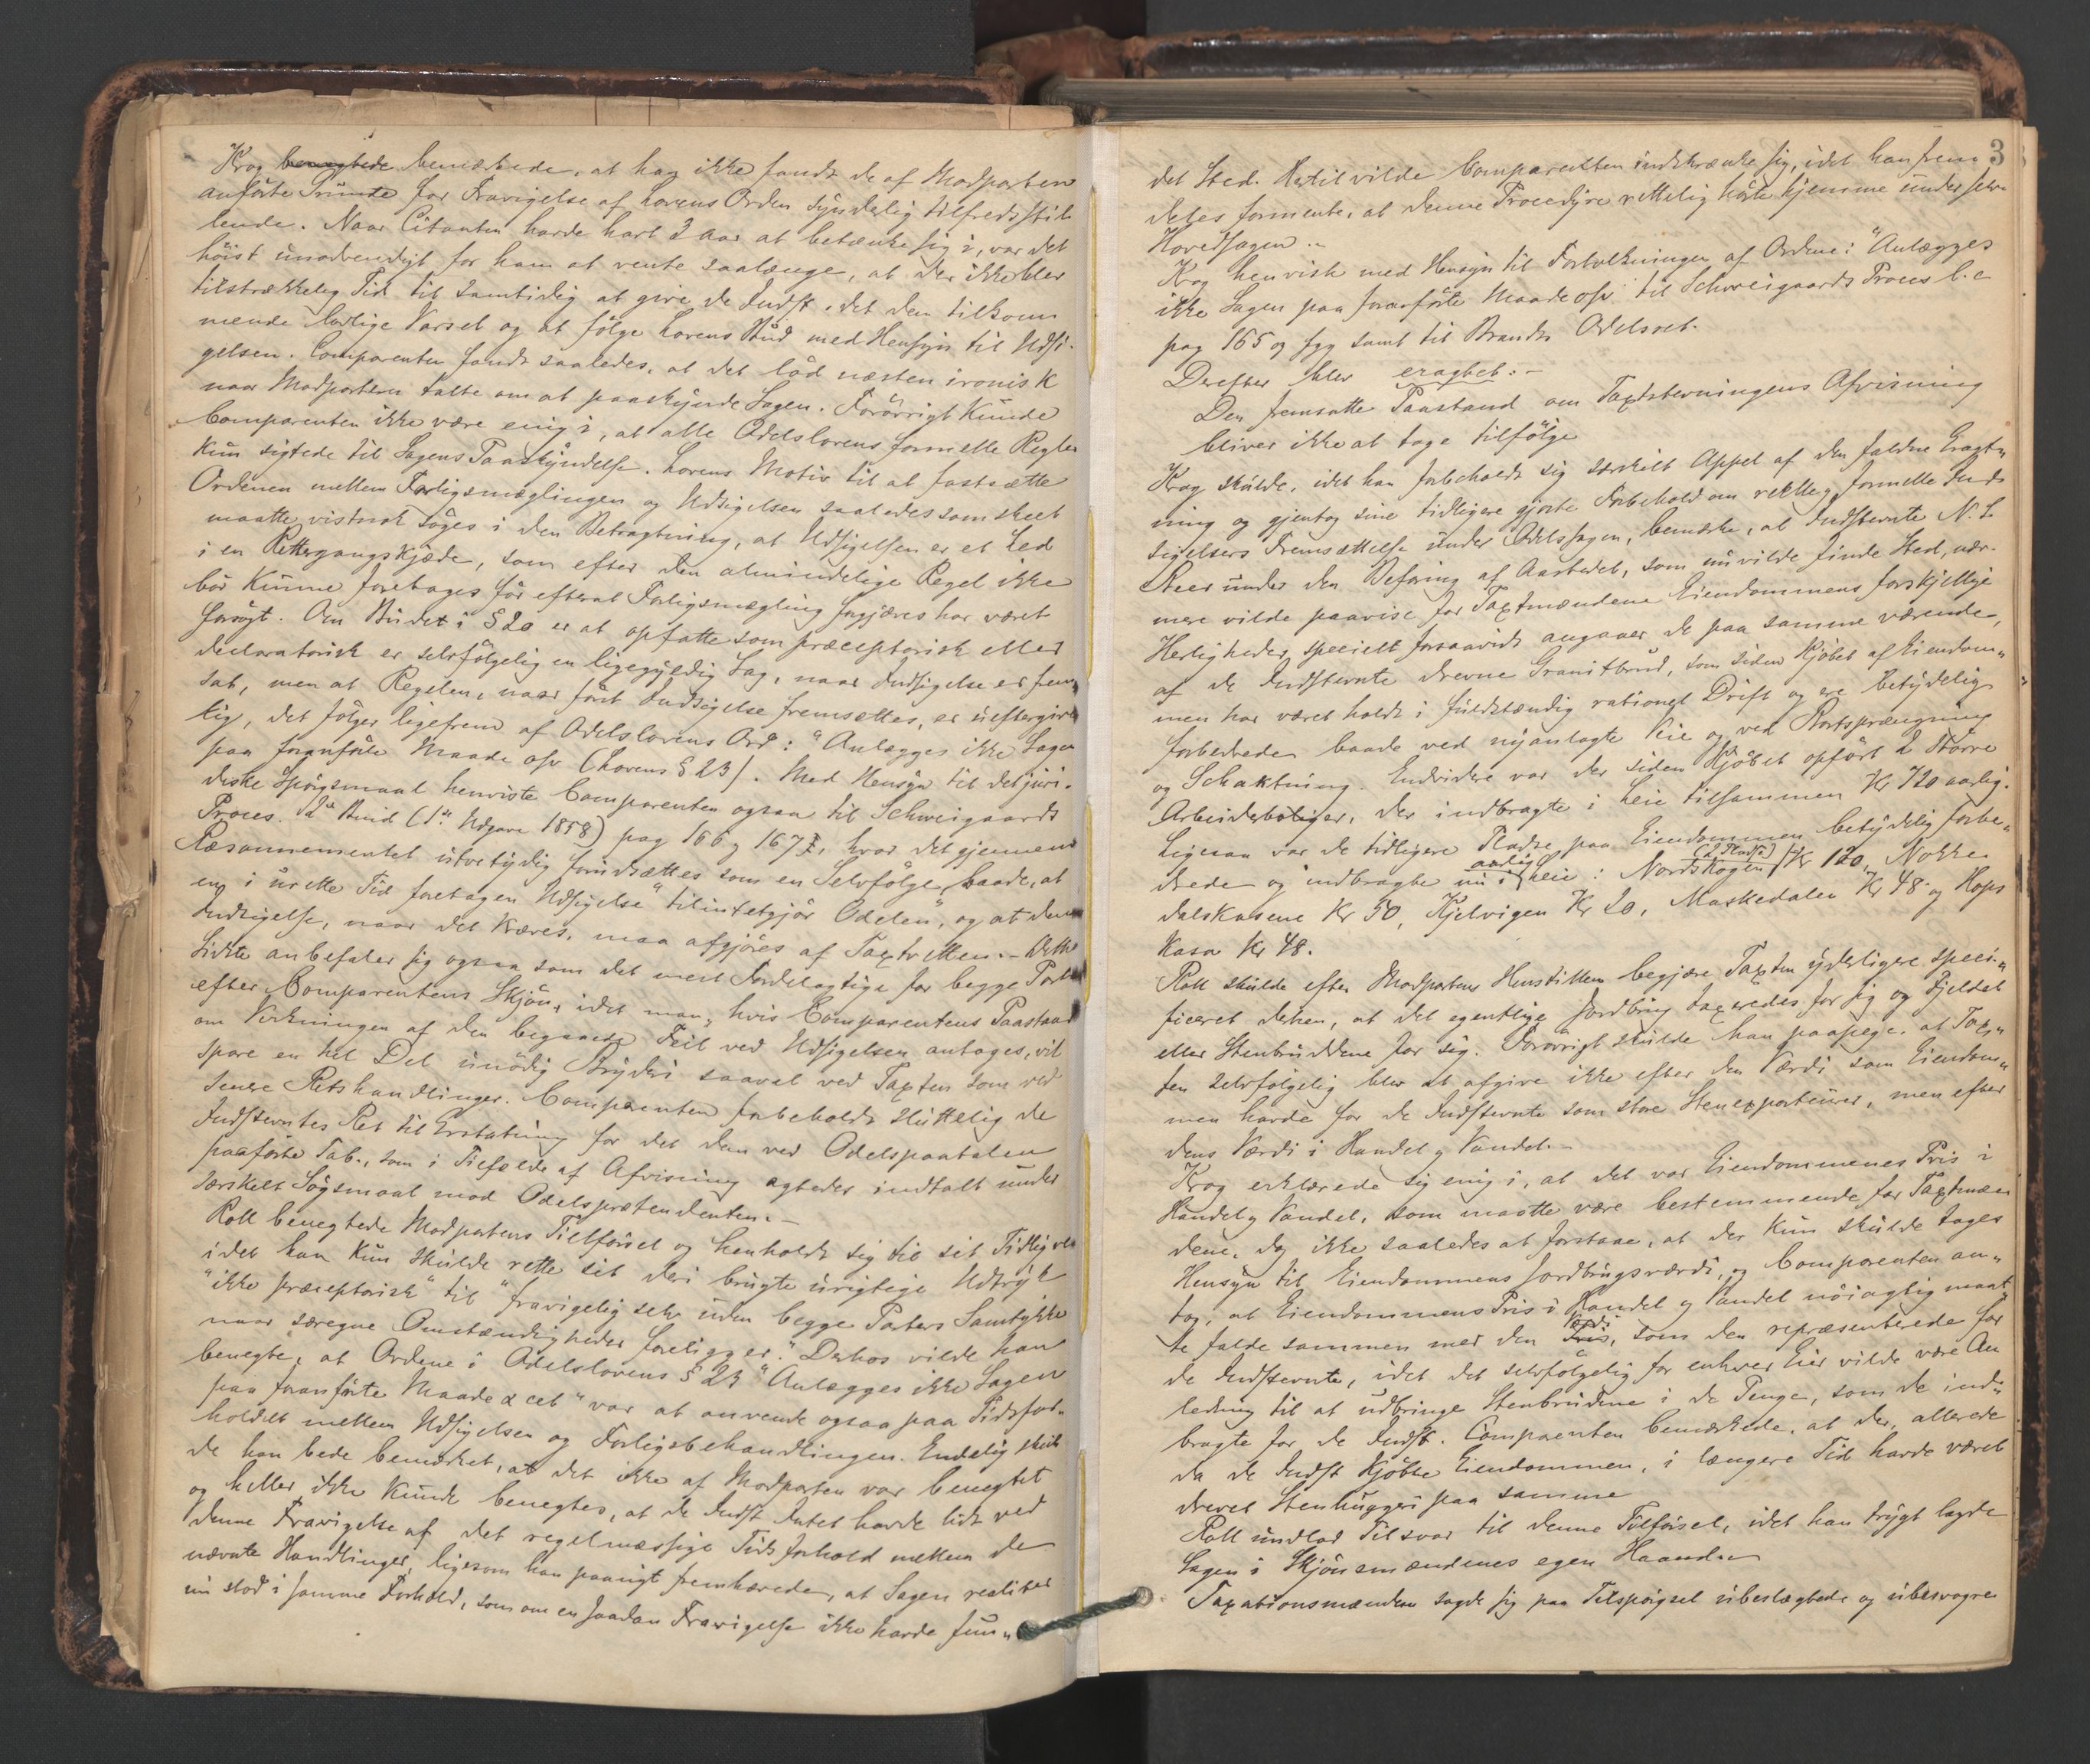 Krog benegtede bemærkede, at han ikke fandt de af Modparten
anførte Grunde for Fravigelse af Lovens Orden synderlig tilfredsstil-
lende. Naar Citanten havde havt 3 Aar at betænke sig i, var det
höist unødvendigt for ham at vente saalænge, at der ikke blev
tilstrækkelig Tid til samtidig at give de Indst. det dem tilkom-
mende lovlige Varsel og at fölge Lovens Bud med Hensyn til Udsi-
gelsen. Comparenten fandt saaledes, at det lød næsten ironisk
naar Modparten talte om at paaskynde Sagen. Forövrigt kunde
Comparenten ikke være enig i, at alle Odelslovens formelle Regler
kun sigtede til Sagens Paaskyndelse. Lovens Motiv til at fastsætte
Ordenen mellem Forligsmæglingen og Udsigelsen saaledes som skeet
maatte vistnok søges i den Betragtning, at Udsigelsen er et Led
i en Rettergangskjæde, som efter den almindelige Regel ikke
bör kunne foretages för efterat Forligsmægling forgjæves har været
forsøgt. Om Budet i § 20 er at opfatte som præceptorisk eller
declaratorisk er selvfølgelig en ligegyldig Sag, naar Indsigelse er frem
sat, men at Regelen, naar først Indsigelse fremsættes, er ueftergive
lig, det følger ligefrem af Odelslovens Ord: "Anlægges ikke Sagen
paa foranførte Maade osv (Lovens § 23). Med Hensyn til det juri-
diske Spörgsmaal henviste Comparenten ogsaa til Schweigaards
Proces. 2det Bind (1ste Udgave 1858) pag 166 og 167, hvor det gjennem
Ræsonnementet utvetydig forudsættes som en Selvfölge, baade, at
en i urette Tid foretagen Udsigelse "tilintetgjör Odelen", og at denne
Indsigelse, naar det kræves, maa afgjöres af Taxtretten. - Dette
Sidste anbefaler sig ogsaa som det mest Fordelagtige for begge Parter
efter Comparentens Skjön, idet man, hvis Comparentens Paastand
om Virkningen af den begaaede Feil ved Udsigelsen antages, vil
spare en hel Del unödig Bryderi saavel ved Taxten som ved
senere Retshandlinger. Comparenten forbeholdt sluttelig de
Indstevntes Ret til Erstatning for det dem ved Odelspaatalen
paaførte Tab, som i Tilfælde af Afvisning agtedes indtalt under
særskilt Søgsmaal mod Odelsprætendenten. -
Roll benegtede Modpartens Tilförsel og henholdt sig til sit Tidligere
idet han kun skulde rette det deri brugte urigtige Udtryk
"ikke præceptorisk" til "fravigelig selv uden begge Parters Samtykke
naar særegne Omstændigheder foreligger." Derhos vilde han
benegte, at Ordene i Odelslovens § 23 "Anlægges ikke Sagen
paa foranførte Maade & cet" var at anvende ogsaa paa Tidsfor-
holdet mellem Udsigelsen og Forligsbehandlingen. Endelig skul
de han bede bemærket, at det ikke af Modparten var benegtet
og heller ikke kunde benegtes, at de Indst Intet havde lidt ved
denne Fravigelse af det regelmæssige Tidsforhold mellem de
nævnte Handlinger, ligesom han paanyt fremhævede, at Sagen realiter
nu stod i samme Forhold, som om en saadan Fravigelse ikke havde fun-
3
det Sted. Hertil vilde Comparenten indskrænke sig, idet han frem
deles formente, at denne Procedyre rettelig hörte hjemme under selve
Hovedsagen. -
Krog henviste med Hensyn til Fortolkningen af Ordene: "Anlægges
ikke Sagen paa foranförte Maade osv" til Schweigaards Proces l. c
pag 165 og fgg samt til Brandts Odelsret.
Derefter blev eragtet: -
Den fremsatte Paastand om Taxtstevningens Afvisning
bliver ikke at tage tilfölge
Krog skulde, idet han forbeholdt sig særskilt Appel af den faldne Eragt-
ning og gjentog sine tidligere gjorte Forbehold om rettelig formelle Ind-
sigelsers Fremsættelse under Odelssagen, bemærke, at Indstevnte N. S.
Beer under den Befaring af Aastedet, som nu vilde finde Sted, nær-
mere vilde paavise for Taxtmændene Eiendommens forskjellige
Herligheder, specielt forsaavidt angaaer de paa samme værende,
af de Indstevnte drevne Granitbrud, som siden Kjøbet af Eiendom-
men har været holdt i fuldstændig rationel Drift og ere betydelig
forbedrede baade ved nyanlagte Veie og ved Bortsprængning
og Schaktning. Endvidere var der siden Kjöbet opført 2 större
Arbeiderboliger, der indbragte i Leie tilsammen Kr 720 aarlig.
Ligesaa var de tidligere Pladse paa Eiendommen betydelig forbe-
drede og indbragte nu i aarlig Leie: Nordskogen (2 Pladse) Kr 120, Nokke-
dalskasene Kr 50, Kjelvigen Kr 20, Maskedalen Kr 48 og Hops
kasa Kr 48.
Roll skulde efter Modpartens Henstillen begjære Taxten yderligere speci-
ficeret derhen, at det egentlige Jordbrug taxeredes for sig og Fjeldet
eller Stenbruddene for sig. Forövrigt skulde han paapege, at Tax-
ten selvfølgelig blev at afgive ikke efter den Værdi som Eiendom-
men havde for de Indstevnte som store Stenexportører, men efter
dens Værdi i Handel og Vandel. -
Krog erklærede sig enig i, at det var Eiendommenes Pris i
Handel og Vandel, som maatte være bestemmende for Taxtmæn
dene, dog ikke saaledes at forstaae, at der kun skulde tages
Hensyn til Eiendommens Jordbrugsværdi, og Comparenten an-
tog, at Eiendommens Pris i Handel og Vandel nöiagtig maat-
te falde sammen med den Pris Værdi, som den repræsenterede for
de Indstevnte, idet det selvfölgelig for enhver Eier vilde være An
ledning til at udbringe Stenbrudene i de Penge, som de ind-
bragte for de Indst. Comparenten bemærkede, at der, allerede
da de Indst Kjøbte Eiendommen, i længere Tid havde været
drevet Stenhuggeri paa samme
Roll undlod Tilsvar til denne Tilførsel, idet han trygt lagde
Sagen i Skjönsmændenes egen Haand. -
Taxationsmændene sagde sig paa Tilspörgsel ubeslægtede og ubesvogre